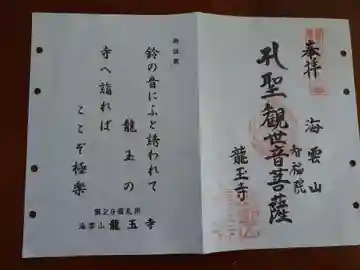 奉拝
海雲山
智福院
聖觀世音菩薩
龍玉寺
御詠歌
鈴の音にふと誘われて
龍玉の
寺へ詣れば
ここぞ極楽
第29番札所
海雲山 龍玉寺